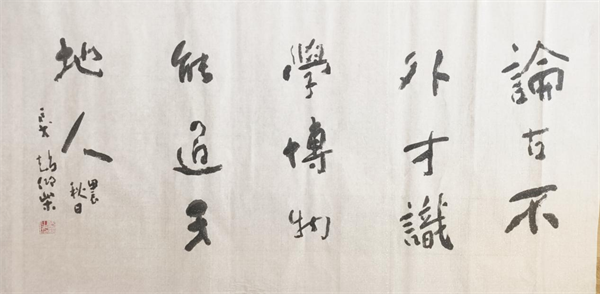 論古不
外才識
學博物
能通天
地人
秋日